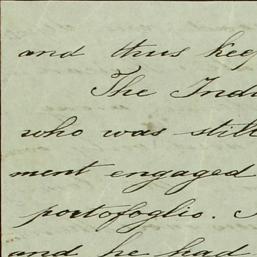 and thus keep
The Indi
who was still
ment engaged
portofoglio.
and he had